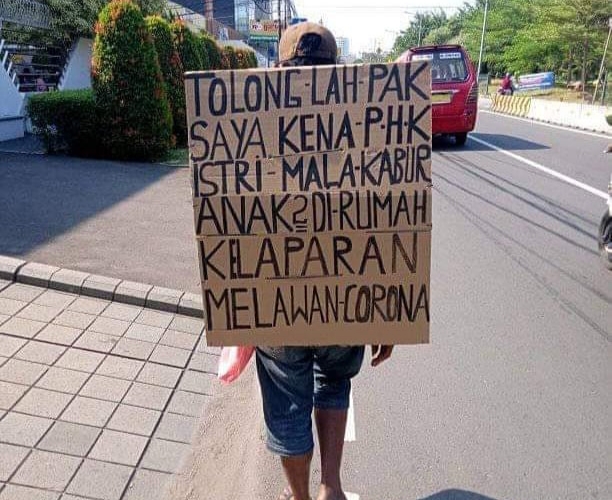 TOLONG-LAH-PAK
SAYA KENA-P-H-K
ISTRI-MALA-KABUR
ANAK2 DI-RUMAH
KELAPARAN
MELAWAN-CORONA